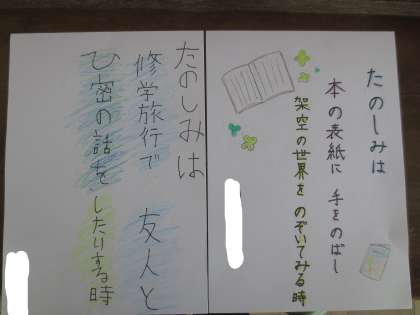 たのしみは
本の表紙に 手をのばし
架空の世界を のぞいてみる時
たのしみは
修学旅行で 友人と
ひ密の話を したりする時